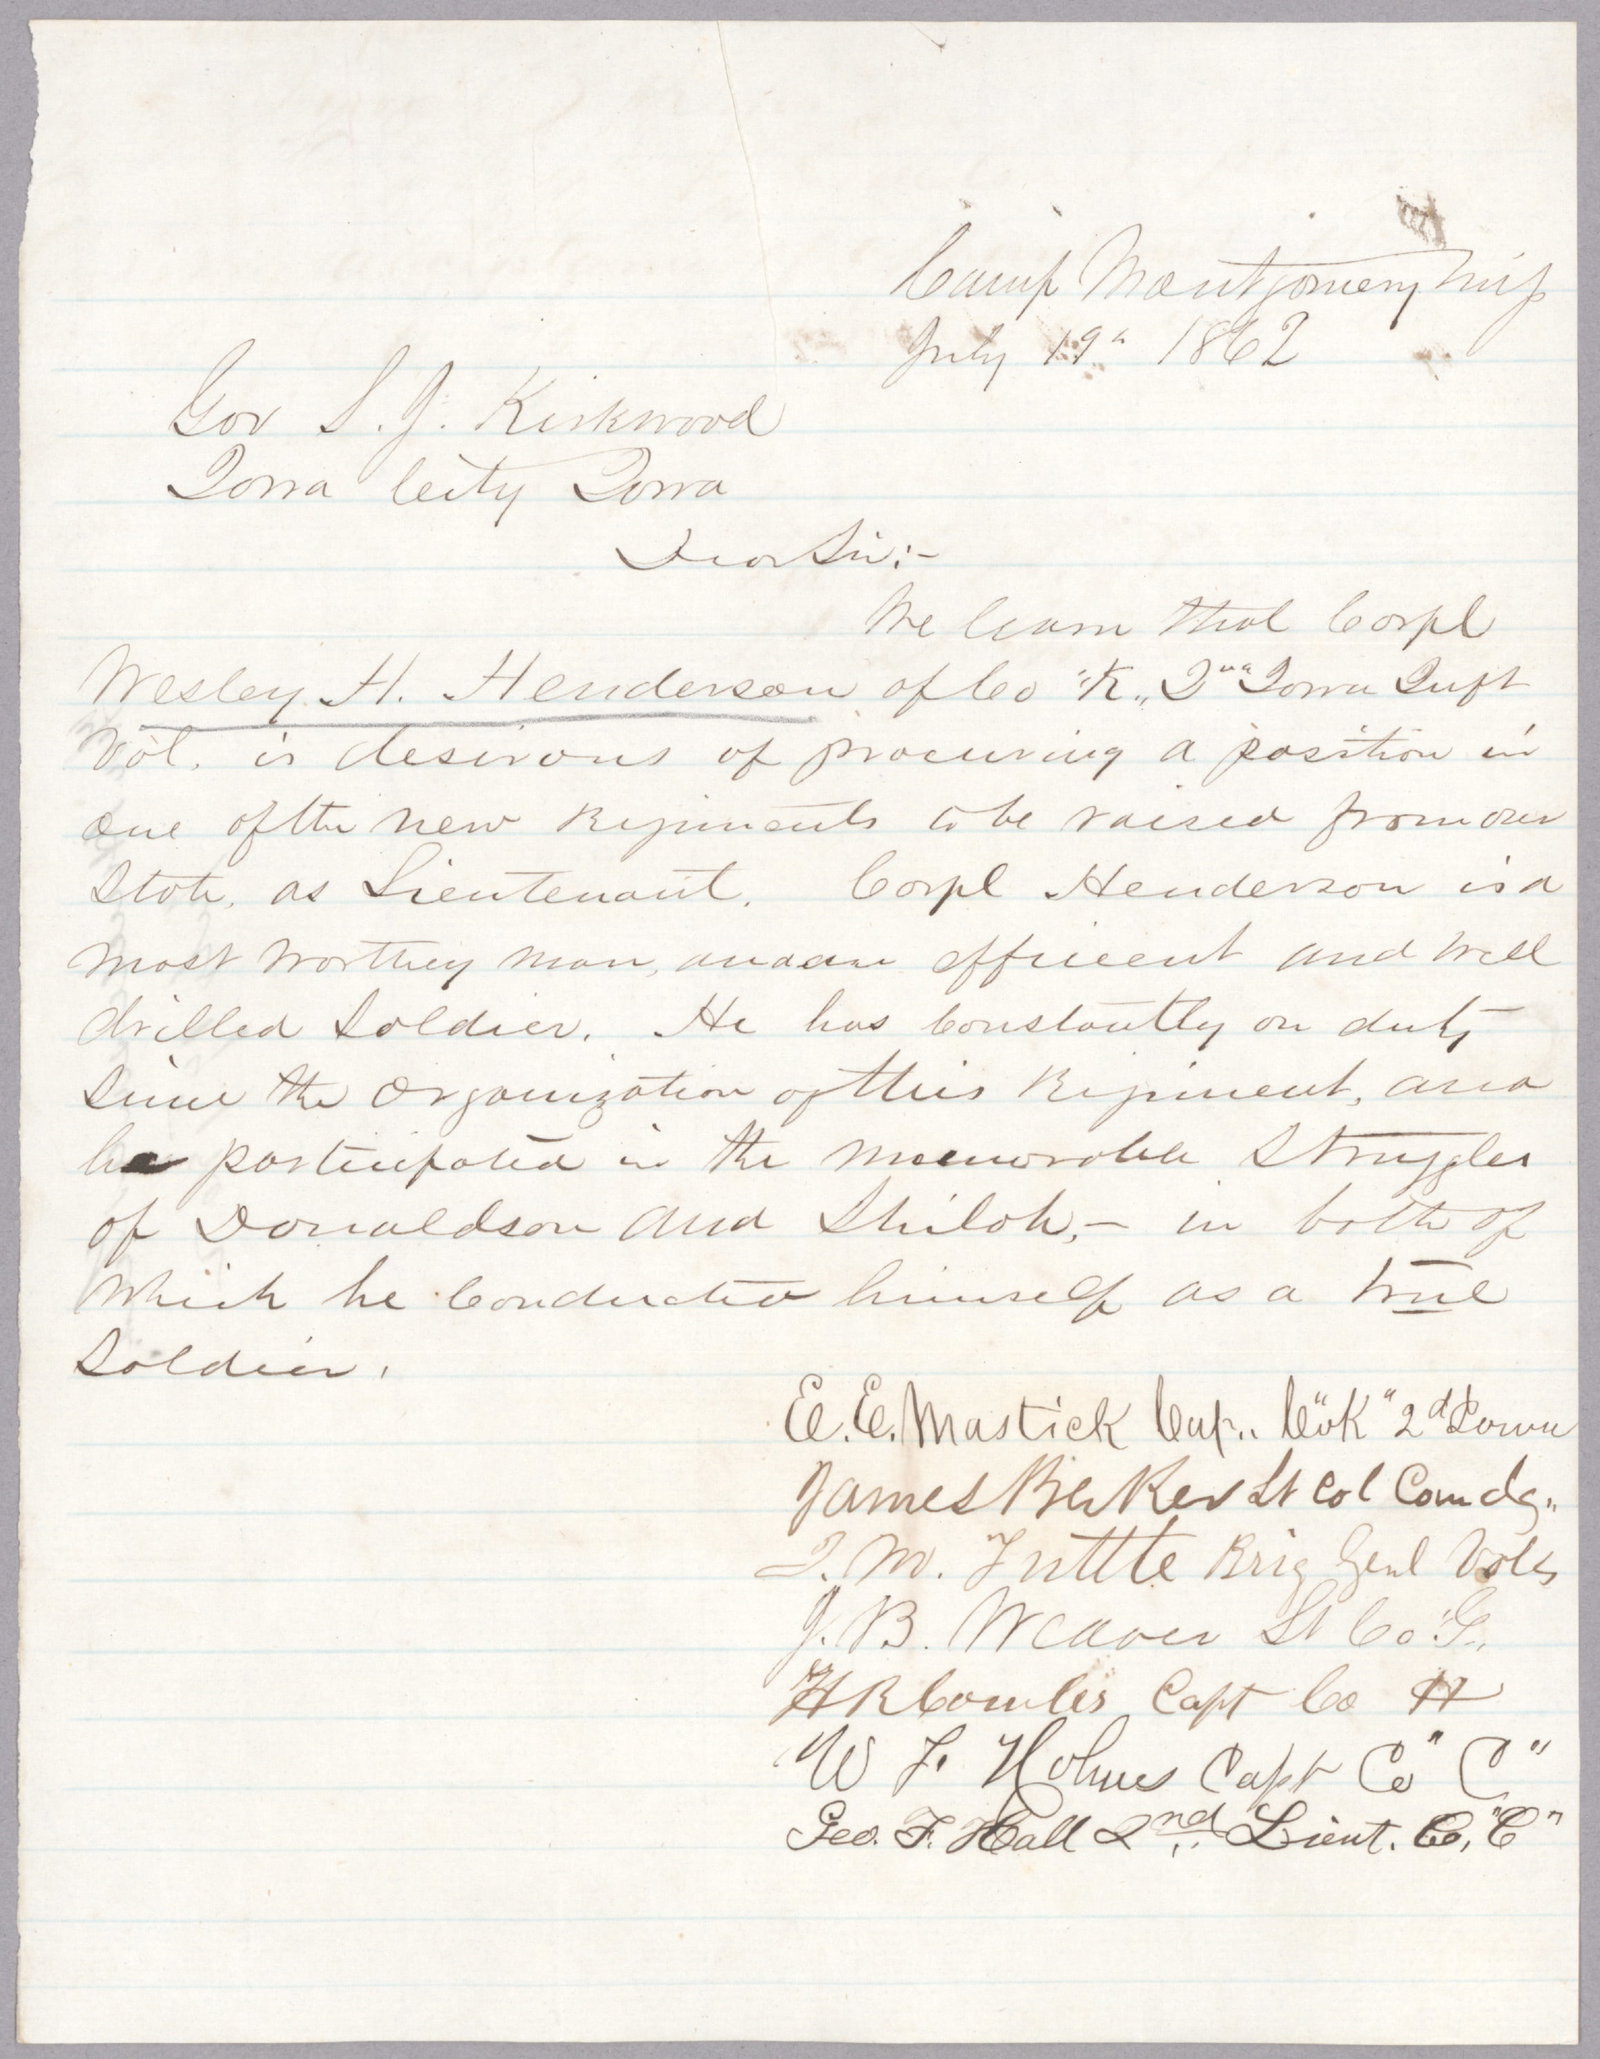 Camp Montgomery Miss
July 19th 1862
Gov S. J. Kirkwood
Iowa City Iowa
Dear Sir:-
We learn that Corpl
Wesley H. Henderson of Co "K" 2nd Iowa Inft
Vol. is desirous of procuring a position in
one of the new Regiments to be raised from our
State, as Lieutenant. Corpl Henderson is a
most worthey man, and an efficient and well
drilled Soldier. He has Constantly on duty
since the Organization of this Regiment, and
he participated in the memorable Struggles
of Donaldson and Shiloh,- in both of
which he Conducted himself as a true
Soldier.
E. E. Mastick Cap.. Co "K" 2d Iowa
James Baker Lt Col Comdg"
J. M. Tuttle Brig Genl Vols
J. B. Weaver Lt Co "G"
H R Cowles Capt Co H
W F Holmes Capt Co "C"
Geo. F. Hall 2nd Lieut. Co, "C"